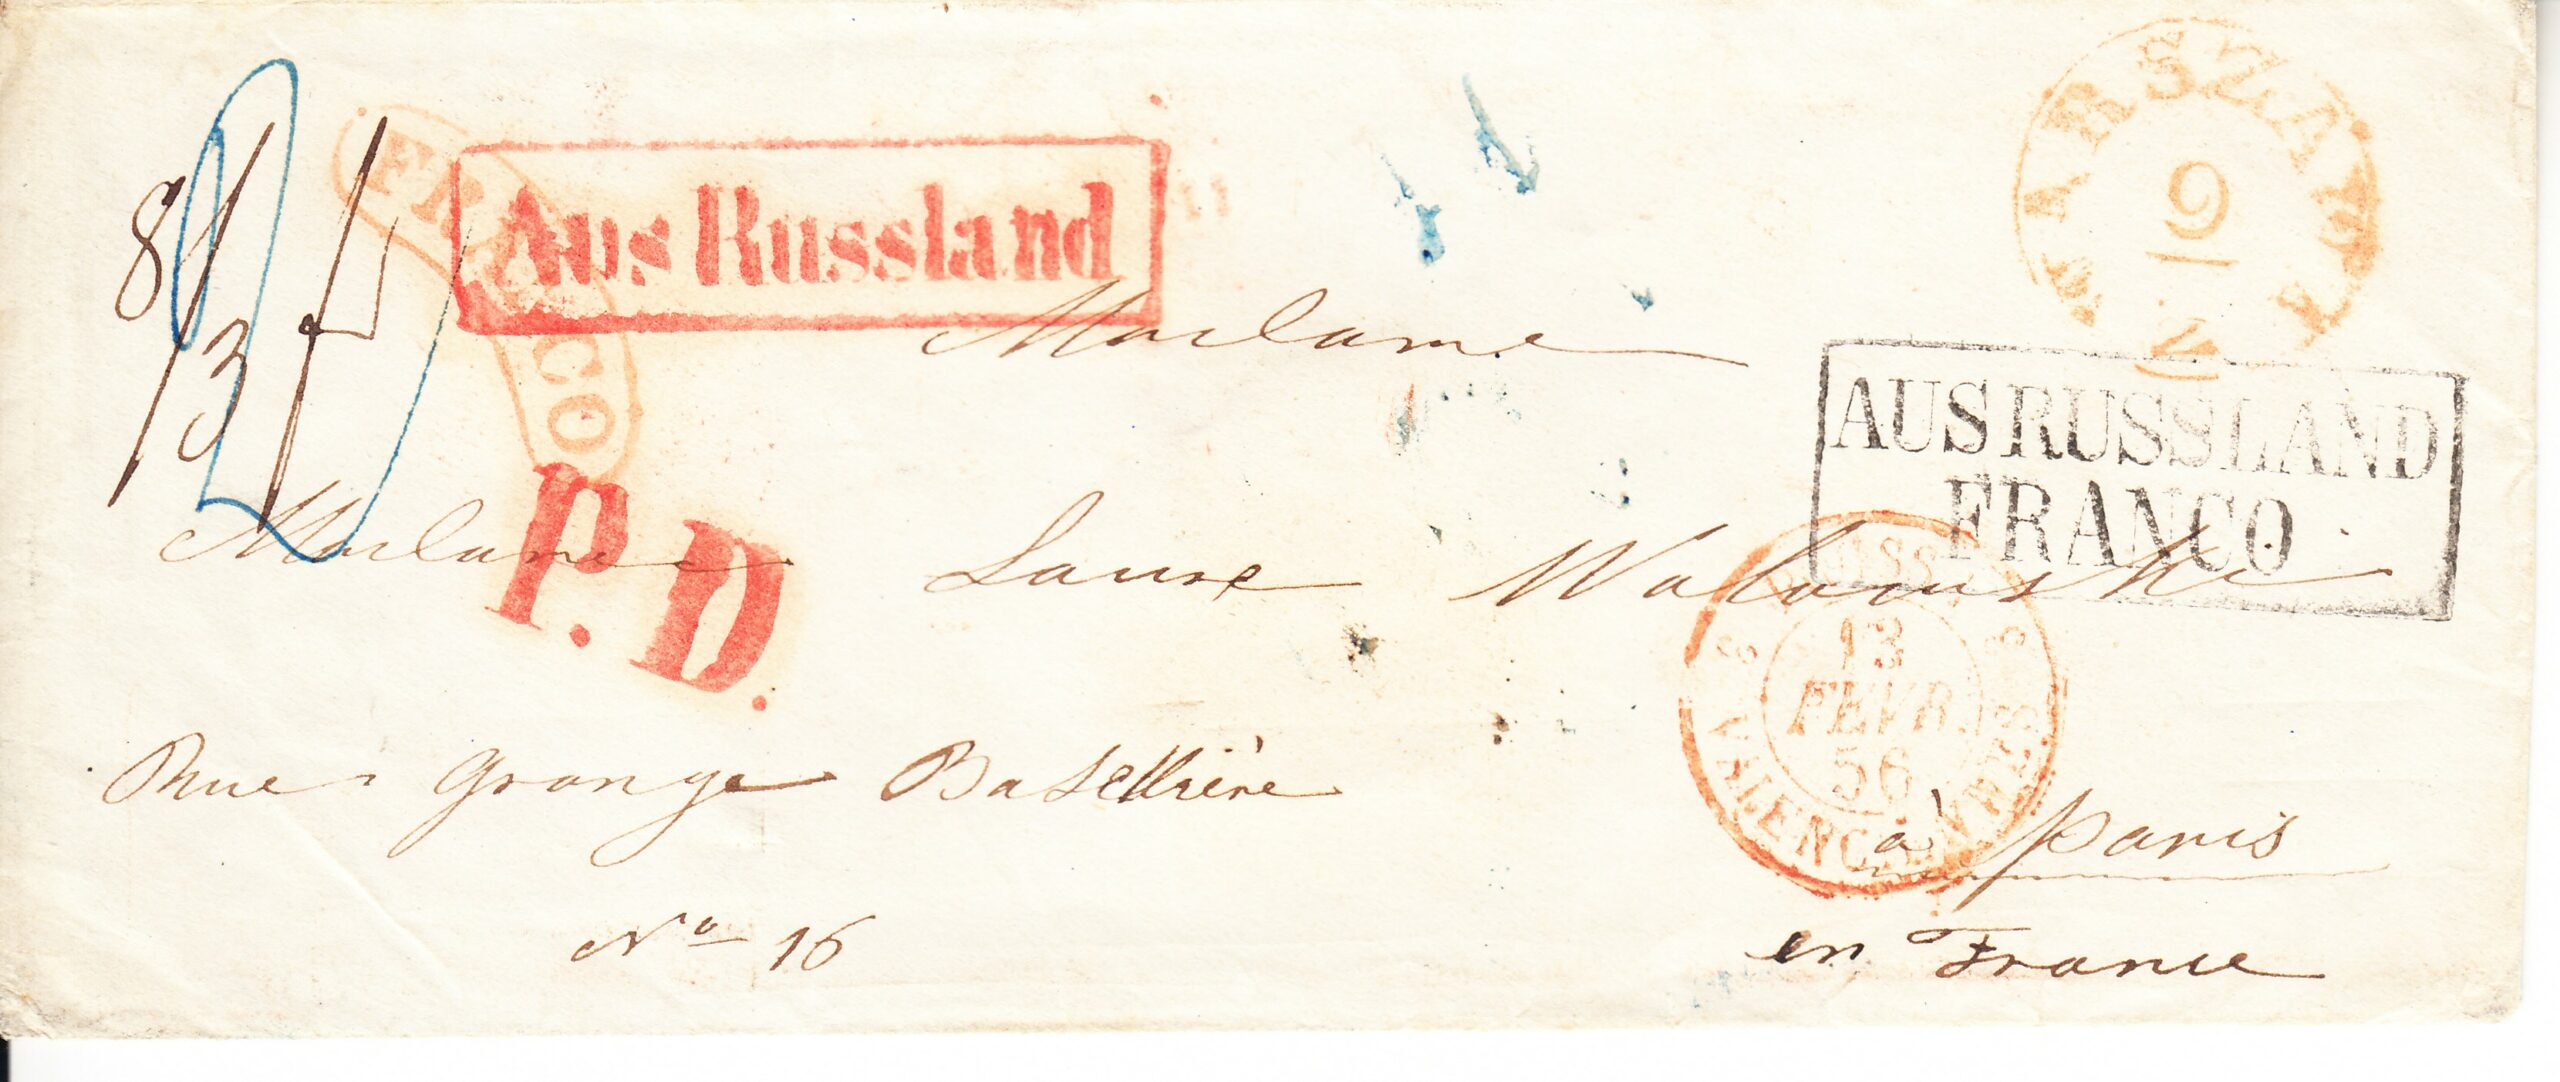 WARSZAWA
9
2
FRANCO
Aus Russland
8/13
2
Madame
AUS RUSSLAND
FRANCO
P.D.
Madame Laure
PRUSSE 3
3 VALENCIENNES 3
13
FEVR.
56
Rue Grange Batellière
à Paris
No 16
en France